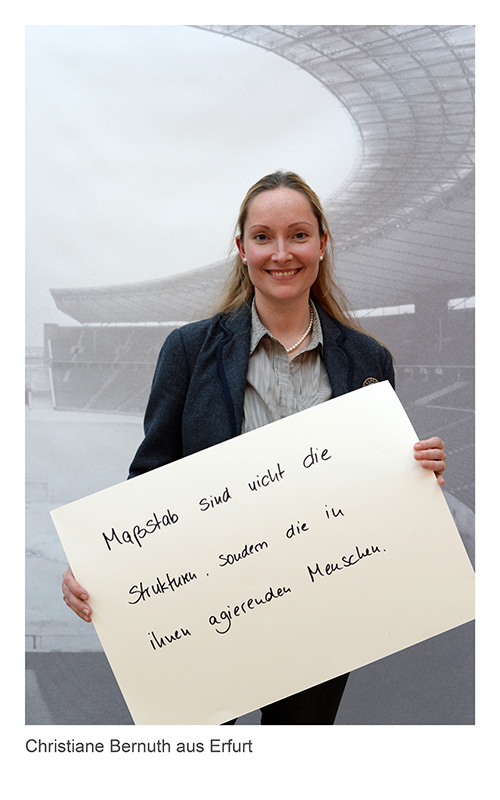 Maßstab sind nicht die
Strukturen, sondern die in
ihnen agierenden Menschen.
Christiane Bernuth aus Erfurt